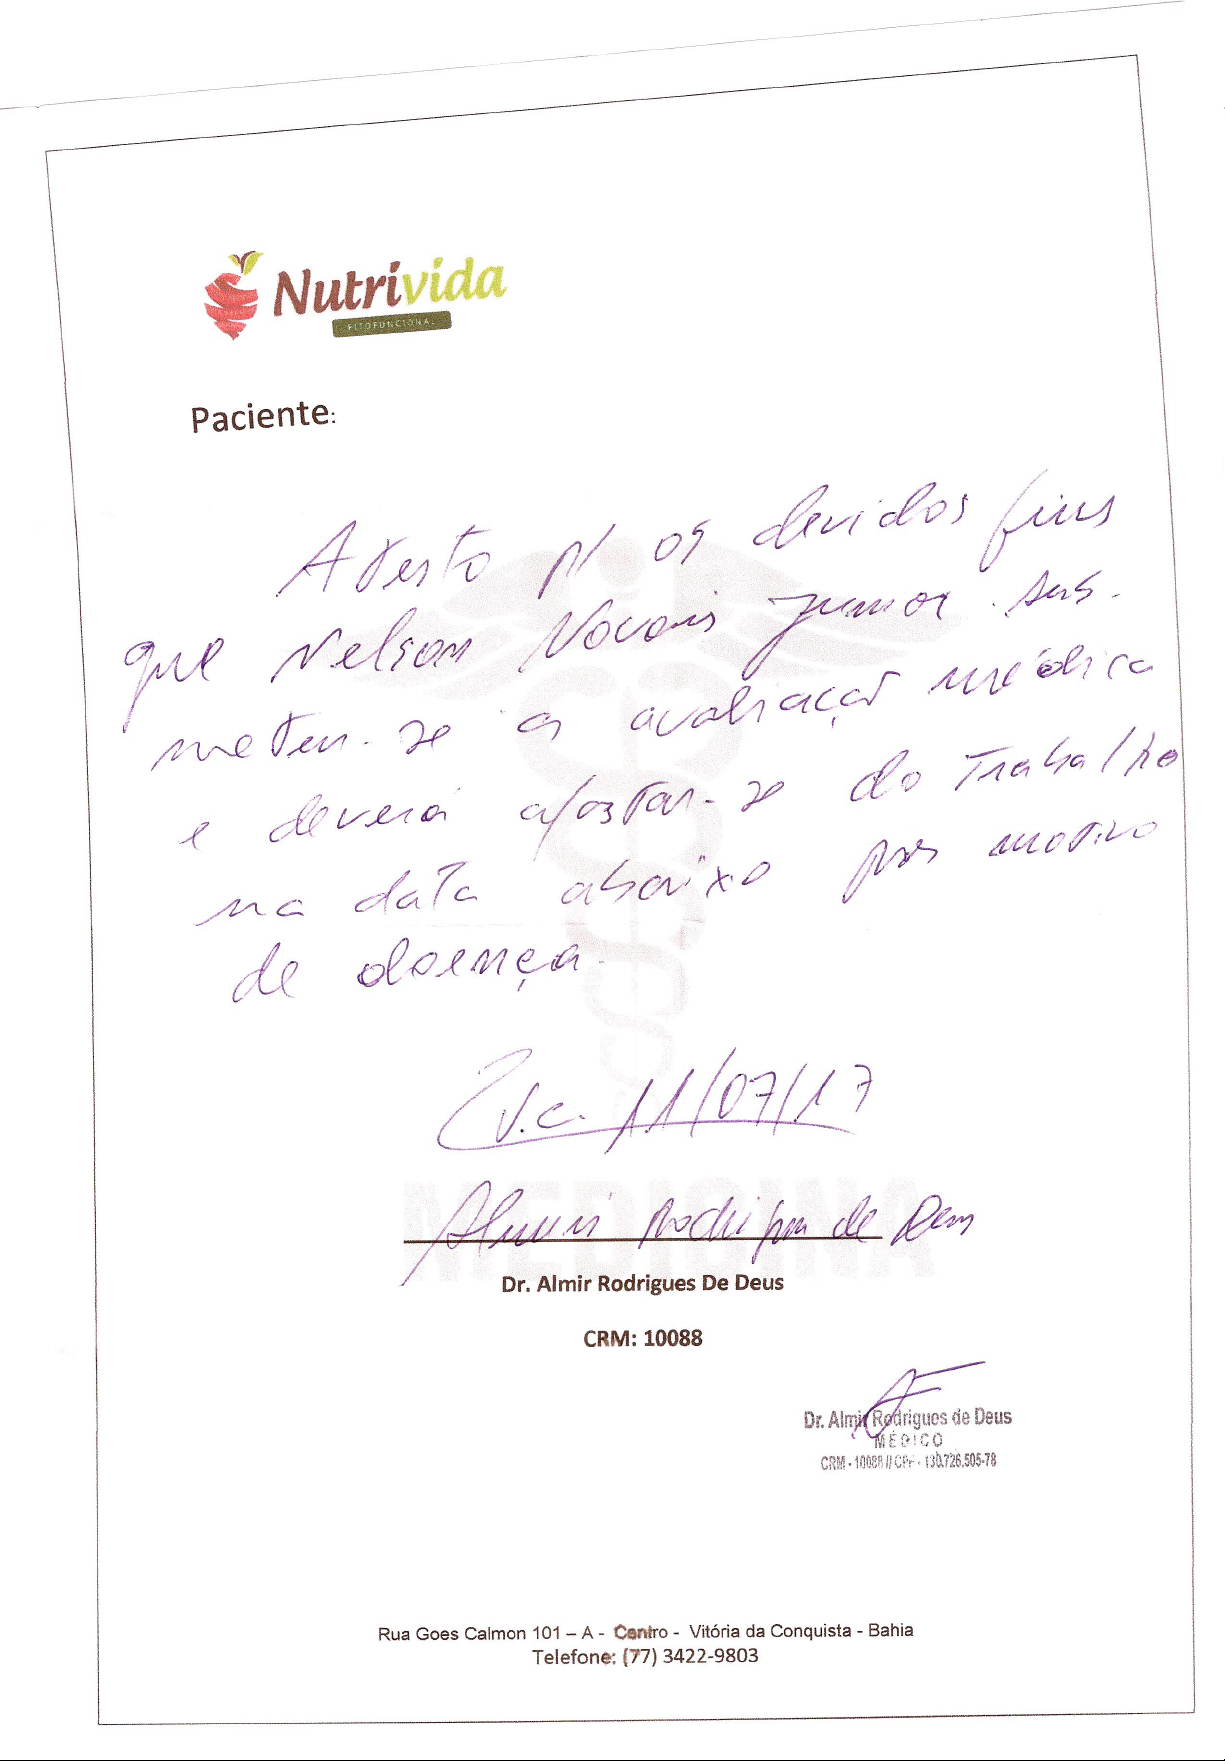 Nutrivida
FITOFUNCIONAL
Paciente:
Atesto p/ os devidos fins
que Nelson Novais Junior sub-
meteu-se a avaliação médica
e deverá afastar-se do trabalho
na data abaixo por motivo
de doença.
V.C. 11/07/17
MEDICINA
Almir Rodrigues de Deus
Dr. Almir Rodrigues De Deus
CRM: 10088
Dr. Almir Rodrigues de Deus
MÉDICO
CRM - 10088 // CPF - 130.726.505-78
Rua Goes Calmon 101 – A - Centro - Vitória da Conquista - Bahia
Telefone: (77) 3422-9803